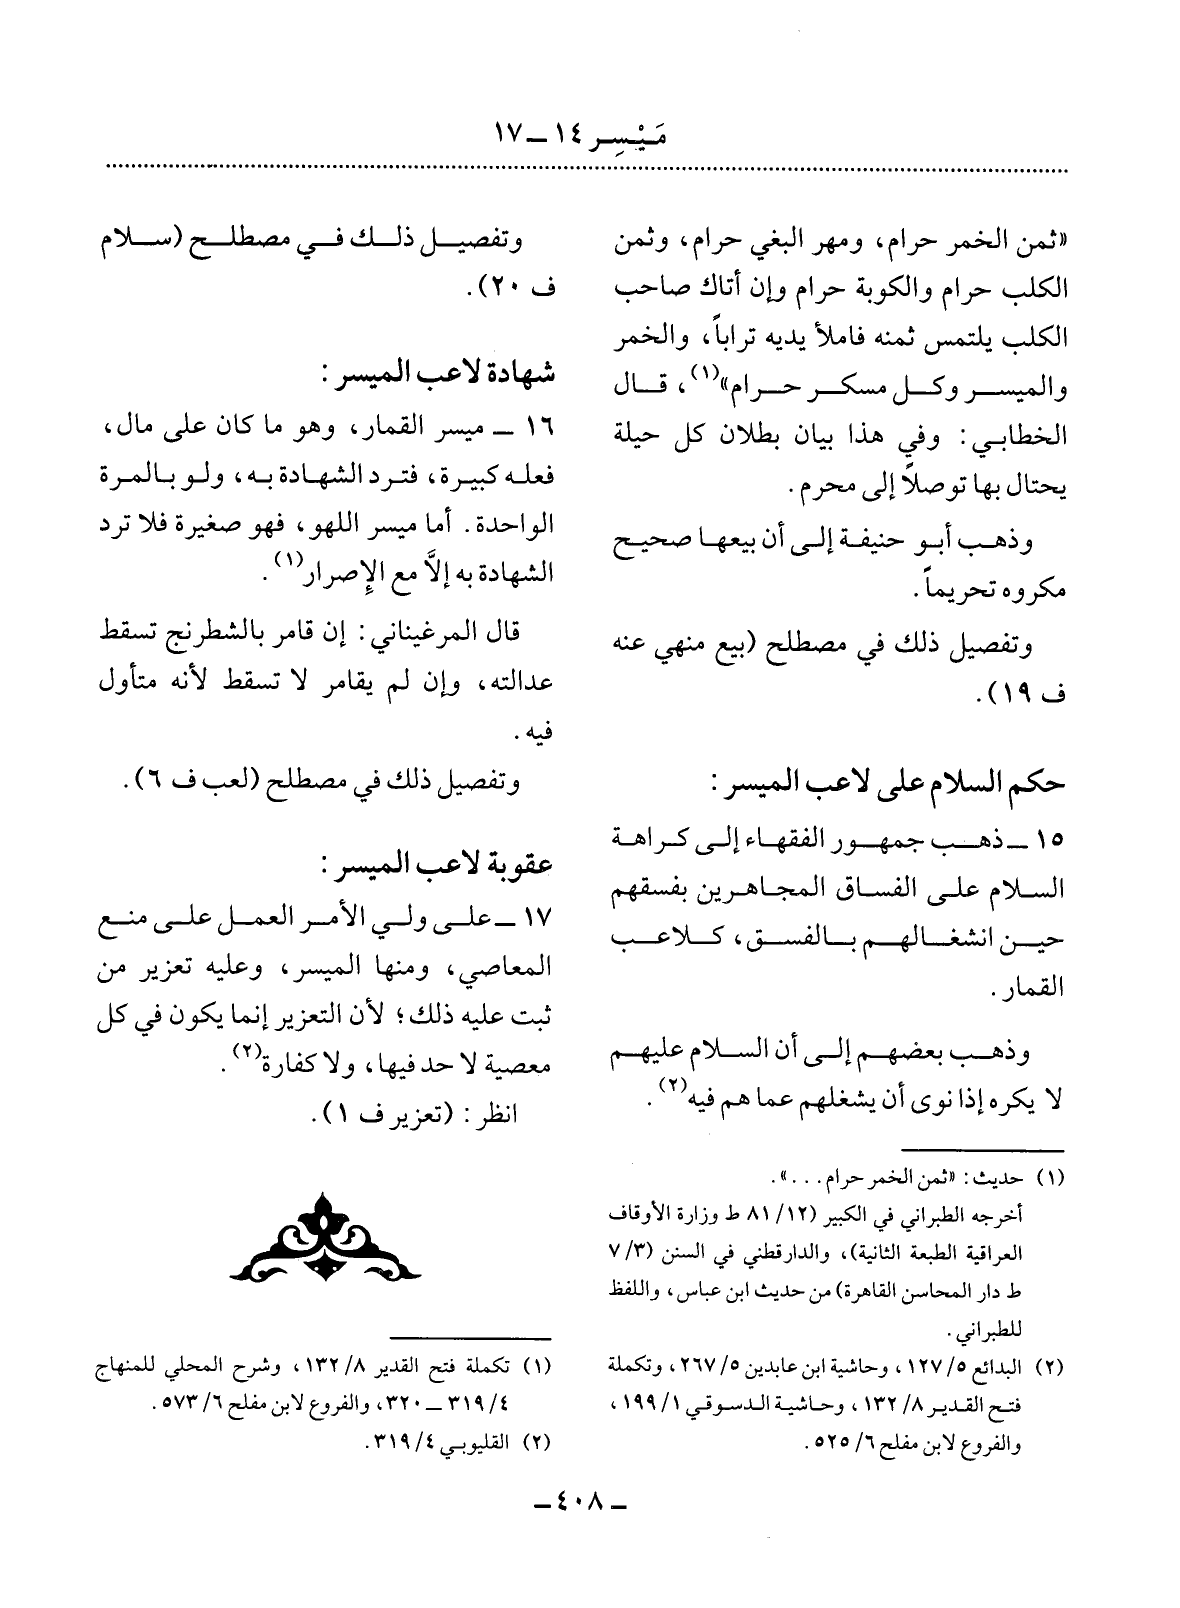 مَيْسِر ١٤ ــ ١٧
«ثمن الخمر حرام، ومهر البغي حرام، وثمن
الكلب حرام والكوبة حرام وإن أتاك صاحب
الكلب يلتمس ثمنه فاملأ يديه تراباً، والخمر
والميسر وكل مسكر حرام»(١)، قال
الخطابي: وفي هذا بيان بطلان كل حيلة
يحتال بها توصلاً إلى محرم.
وذهب أبو حنيفة إلى أن بيعها صحيح
مكروه تحريماً.
وتفصيل ذلك في مصطلح (بيع منهي عنه
ف ١٩).
حكم السلام على لاعب الميسر:
١٥ ــ ذهب جمهور الفقهاء إلى كراهة
السلام على الفساق المجاهرين بفسقهم
حين انشغالهم بالفسق، كلاعب
القمار.
وذهب بعضهم إلى أن السلام عليهم
لا يكره إذا نوى أن يشغلهم عما هم فيه(٢).
(١) حديث: «ثمن الخمر حرام...».
أخرجه الطبراني في الكبير (١٢/ ٨١ ط وزارة الأوقاف
العراقية الطبعة الثانية)، والدارقطني في السنن (٣/ ٧
ط دار المحاسن القاهرة) من حديث ابن عباس، واللفظ
للطبراني.
(٢) البدائع ٥/ ١٢٧، وحاشية ابن عابدين ٥/ ٢٦٧، وتكملة
فتح القدير ٨/ ١٣٢، وحاشية الدسوقي ١/ ١٩٩،
والفروع لابن مفلح ٦/ ٥٢٥.
وتفصيل ذلك في مصطلح (سلام
ف ٢٠).
شهادة لاعب الميسر:
١٦ ــ ميسر القمار، وهو ما كان على مال،
فعله كبيرة، فترد الشهادة به، ولو بالمرة
الواحدة. أما ميسر اللهو، فهو صغيرة فلا ترد
الشهادة به إلاَّ مع الإصرار(١).
قال المرغيناني: إن قامر بالشطرنج تسقط
عدالته، وإن لم يقامر لا تسقط لأنه متأول
فيه.
وتفصيل ذلك في مصطلح (لعب ف ٦).
عقوبة لاعب الميسر:
١٧ ــ على ولي الأمر العمل على منع
المعاصي، ومنها الميسر، وعليه تعزير من
ثبت عليه ذلك؛ لأن التعزير إنما يكون في كل
معصية لا حد فيها، ولا كفارة(٢).
انظر: (تعزير ف ١).
(١) تكملة فتح القدير ٨/ ١٣٢، وشرح المحلي للمنهاج
٤/ ٣١٩ ــ ٣٢٠، والفروع لابن مفلح ٦/ ٥٧٣.
(٢) القليوبي ٤/ ٣١٩.
ــ ٤٠٨ ــ